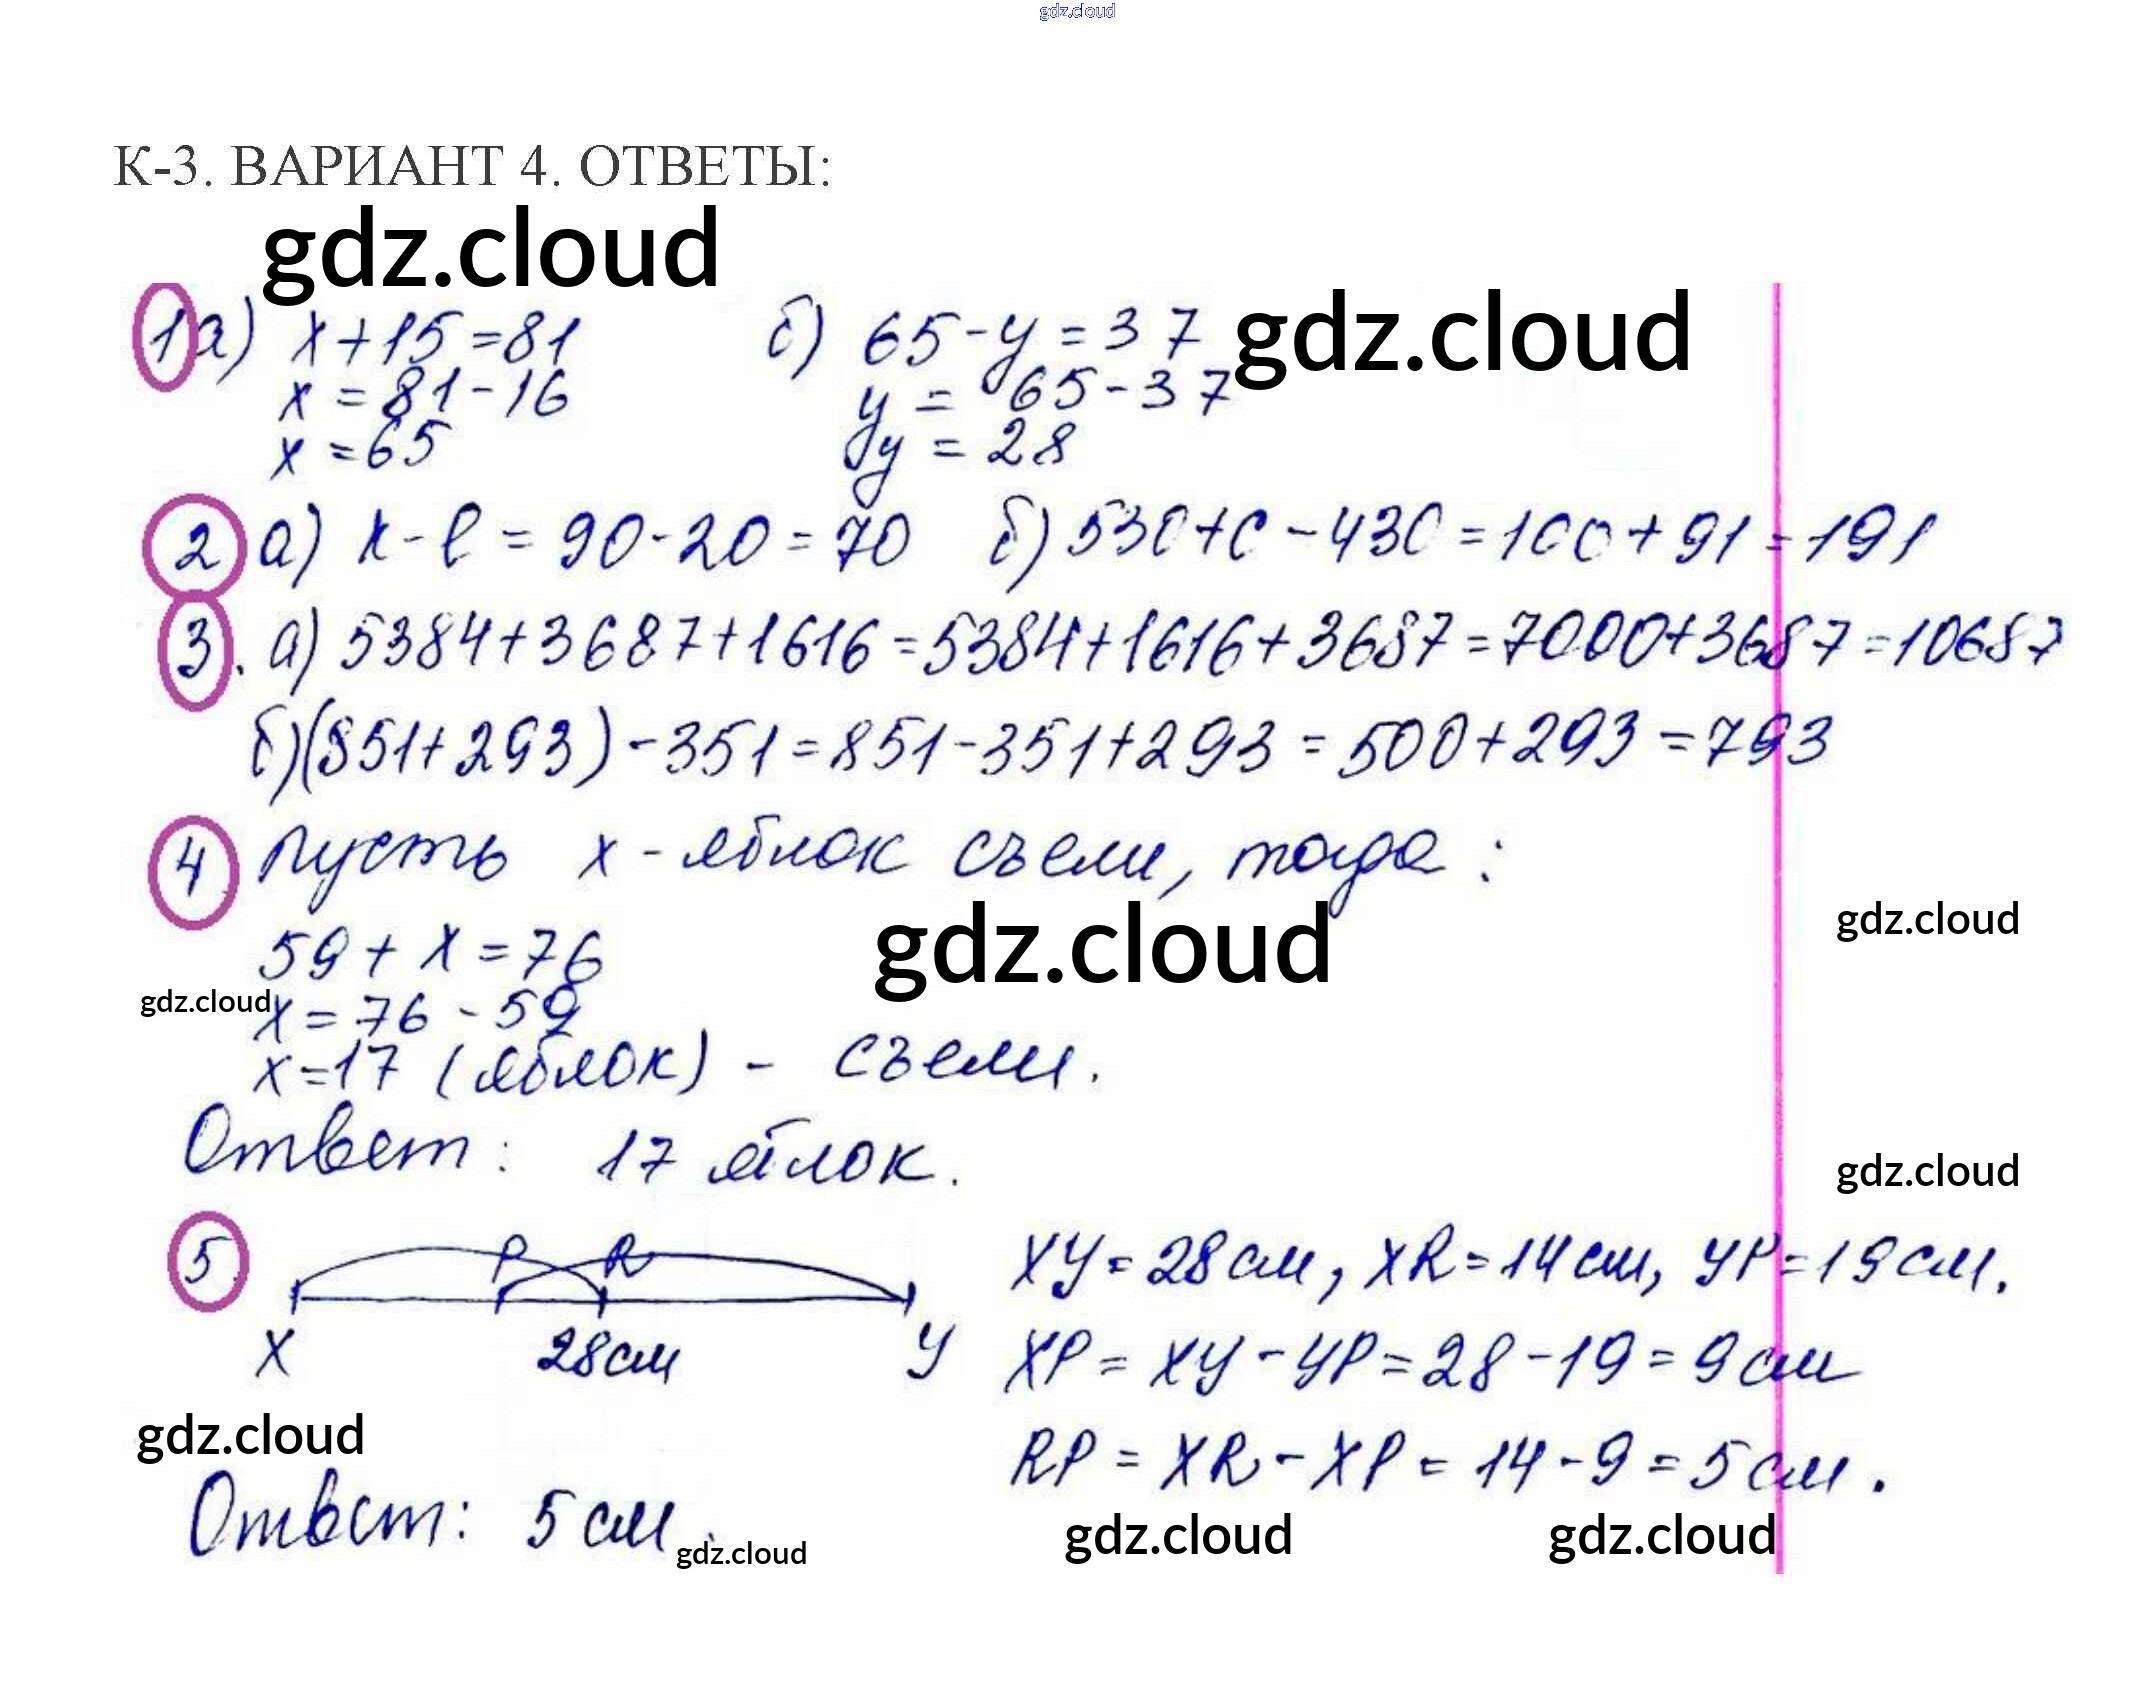 gdz.cloud
К-3. ВАРИАНТ 4. ОТВЕТЫ:
gdz.cloud
gdz.cloud
1 а) x+15=81 б) 65-y=37
x=81-16 y=65-37
x=65 y=28
2 а) x-l=90-20=70 б) 530+c-430=100+91=191
3. а) 5384+3687+1616=5384+1616+3687=7000+3687=10687
б) (851+293)-351=851-351+293=500+293=793
4 Пусть x-яблок съели, тогда:
gdz.cloud
gdz.cloud
59+x=76
gdz.cloud
x=76-59
x=17 (яблок) - съели.
Ответ: 17 яблок.
gdz.cloud
5 P R XY=28см, XR=14см, YP=19см.
X 28см Y XP=XY-YP=28-19=9см
gdz.cloud
RP=XR-XP=14-9=5см.
Ответ: 5см.
gdz.cloud
gdz.cloud
gdz.cloud